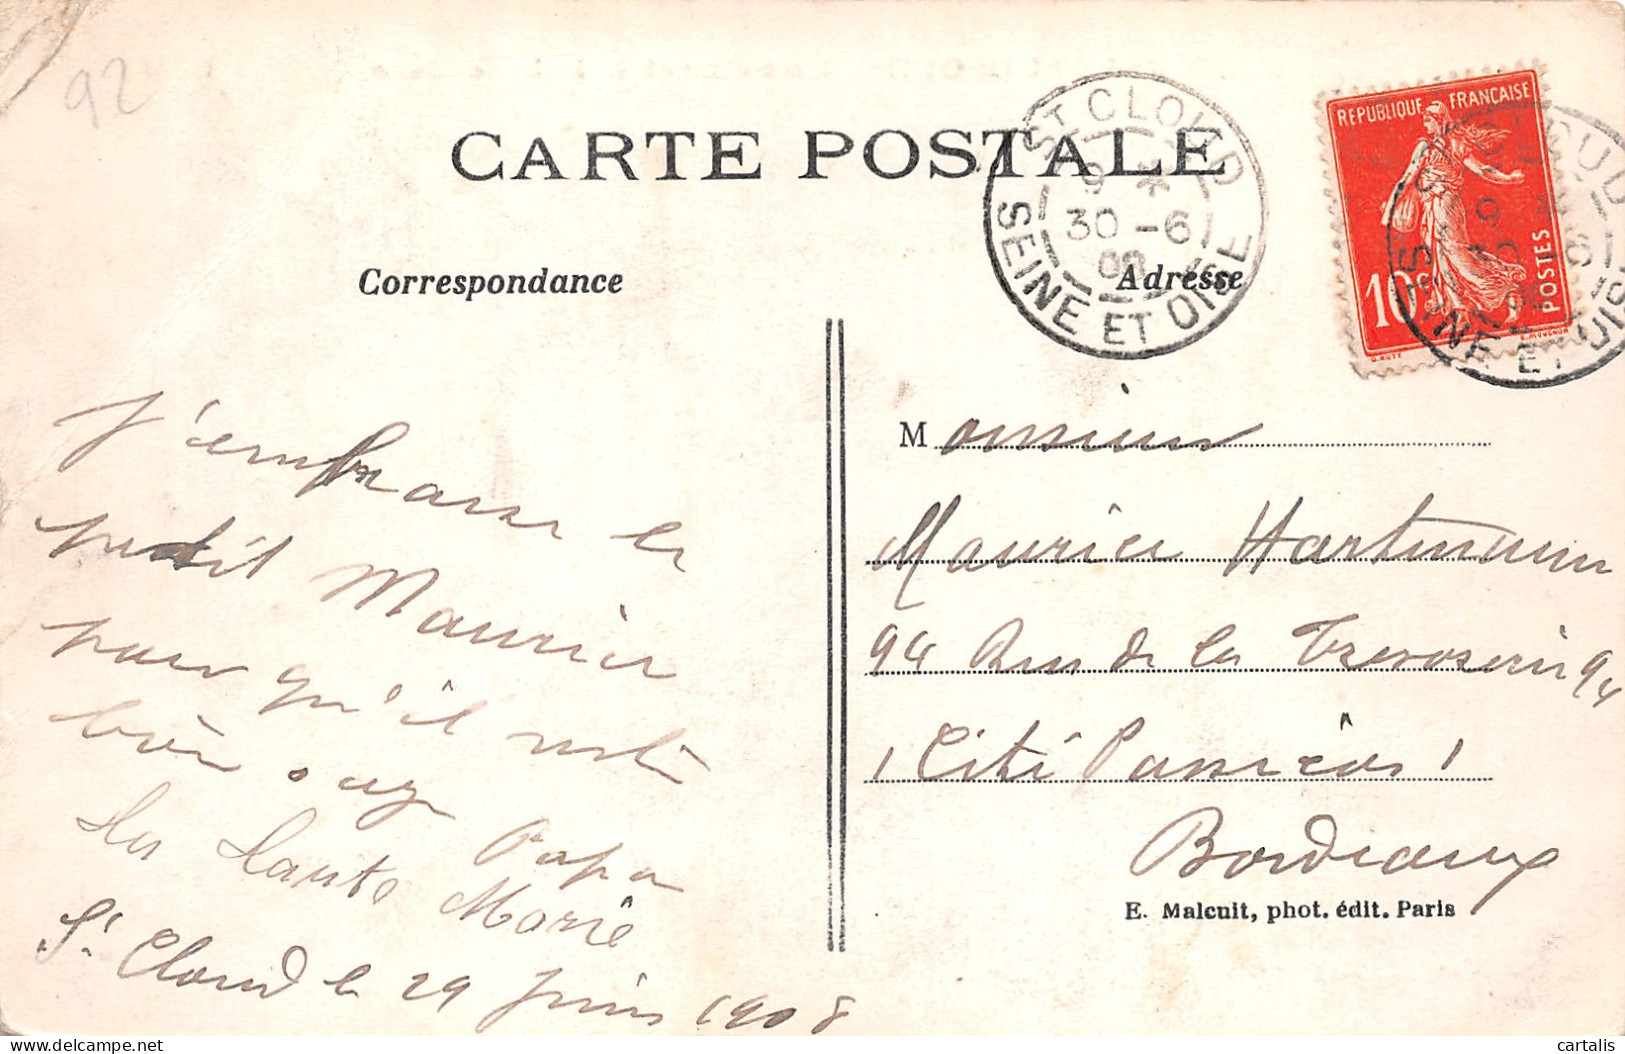 92
CARTE POSTALE
ST CLOUD
9 *
30 - 6
08
SEINE ET OISE
REPUBLIQUE FRANÇAISE
POSTES
10c
Correspondance
Adresse
J'embrasse le
petit Maurice
pour qu'il reste
bien sage
Papa
Marie
St Cloud le 29 Juin 1908
Monsieur
Maurice Hartmann
94 Rue de la 94
Cité
Bordeaux
E. Malcuit, phot. édit. Paris
cartalis
delcampe.net